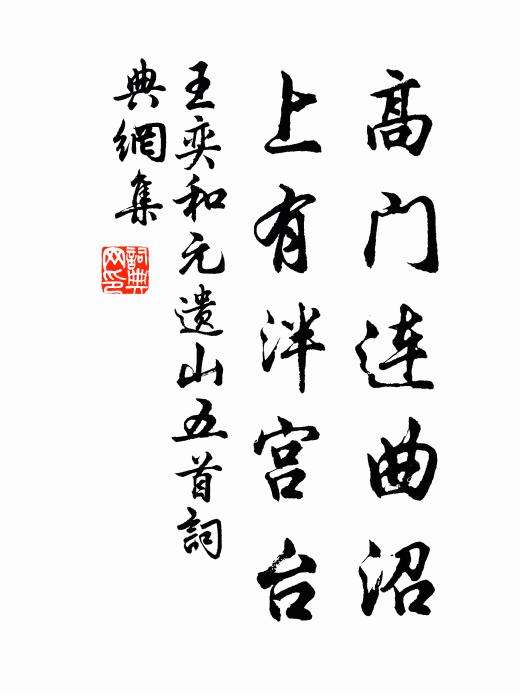 高门连曲沼
上有泮宫台
王奕和元遗山五首詞
典網集
詞典网印